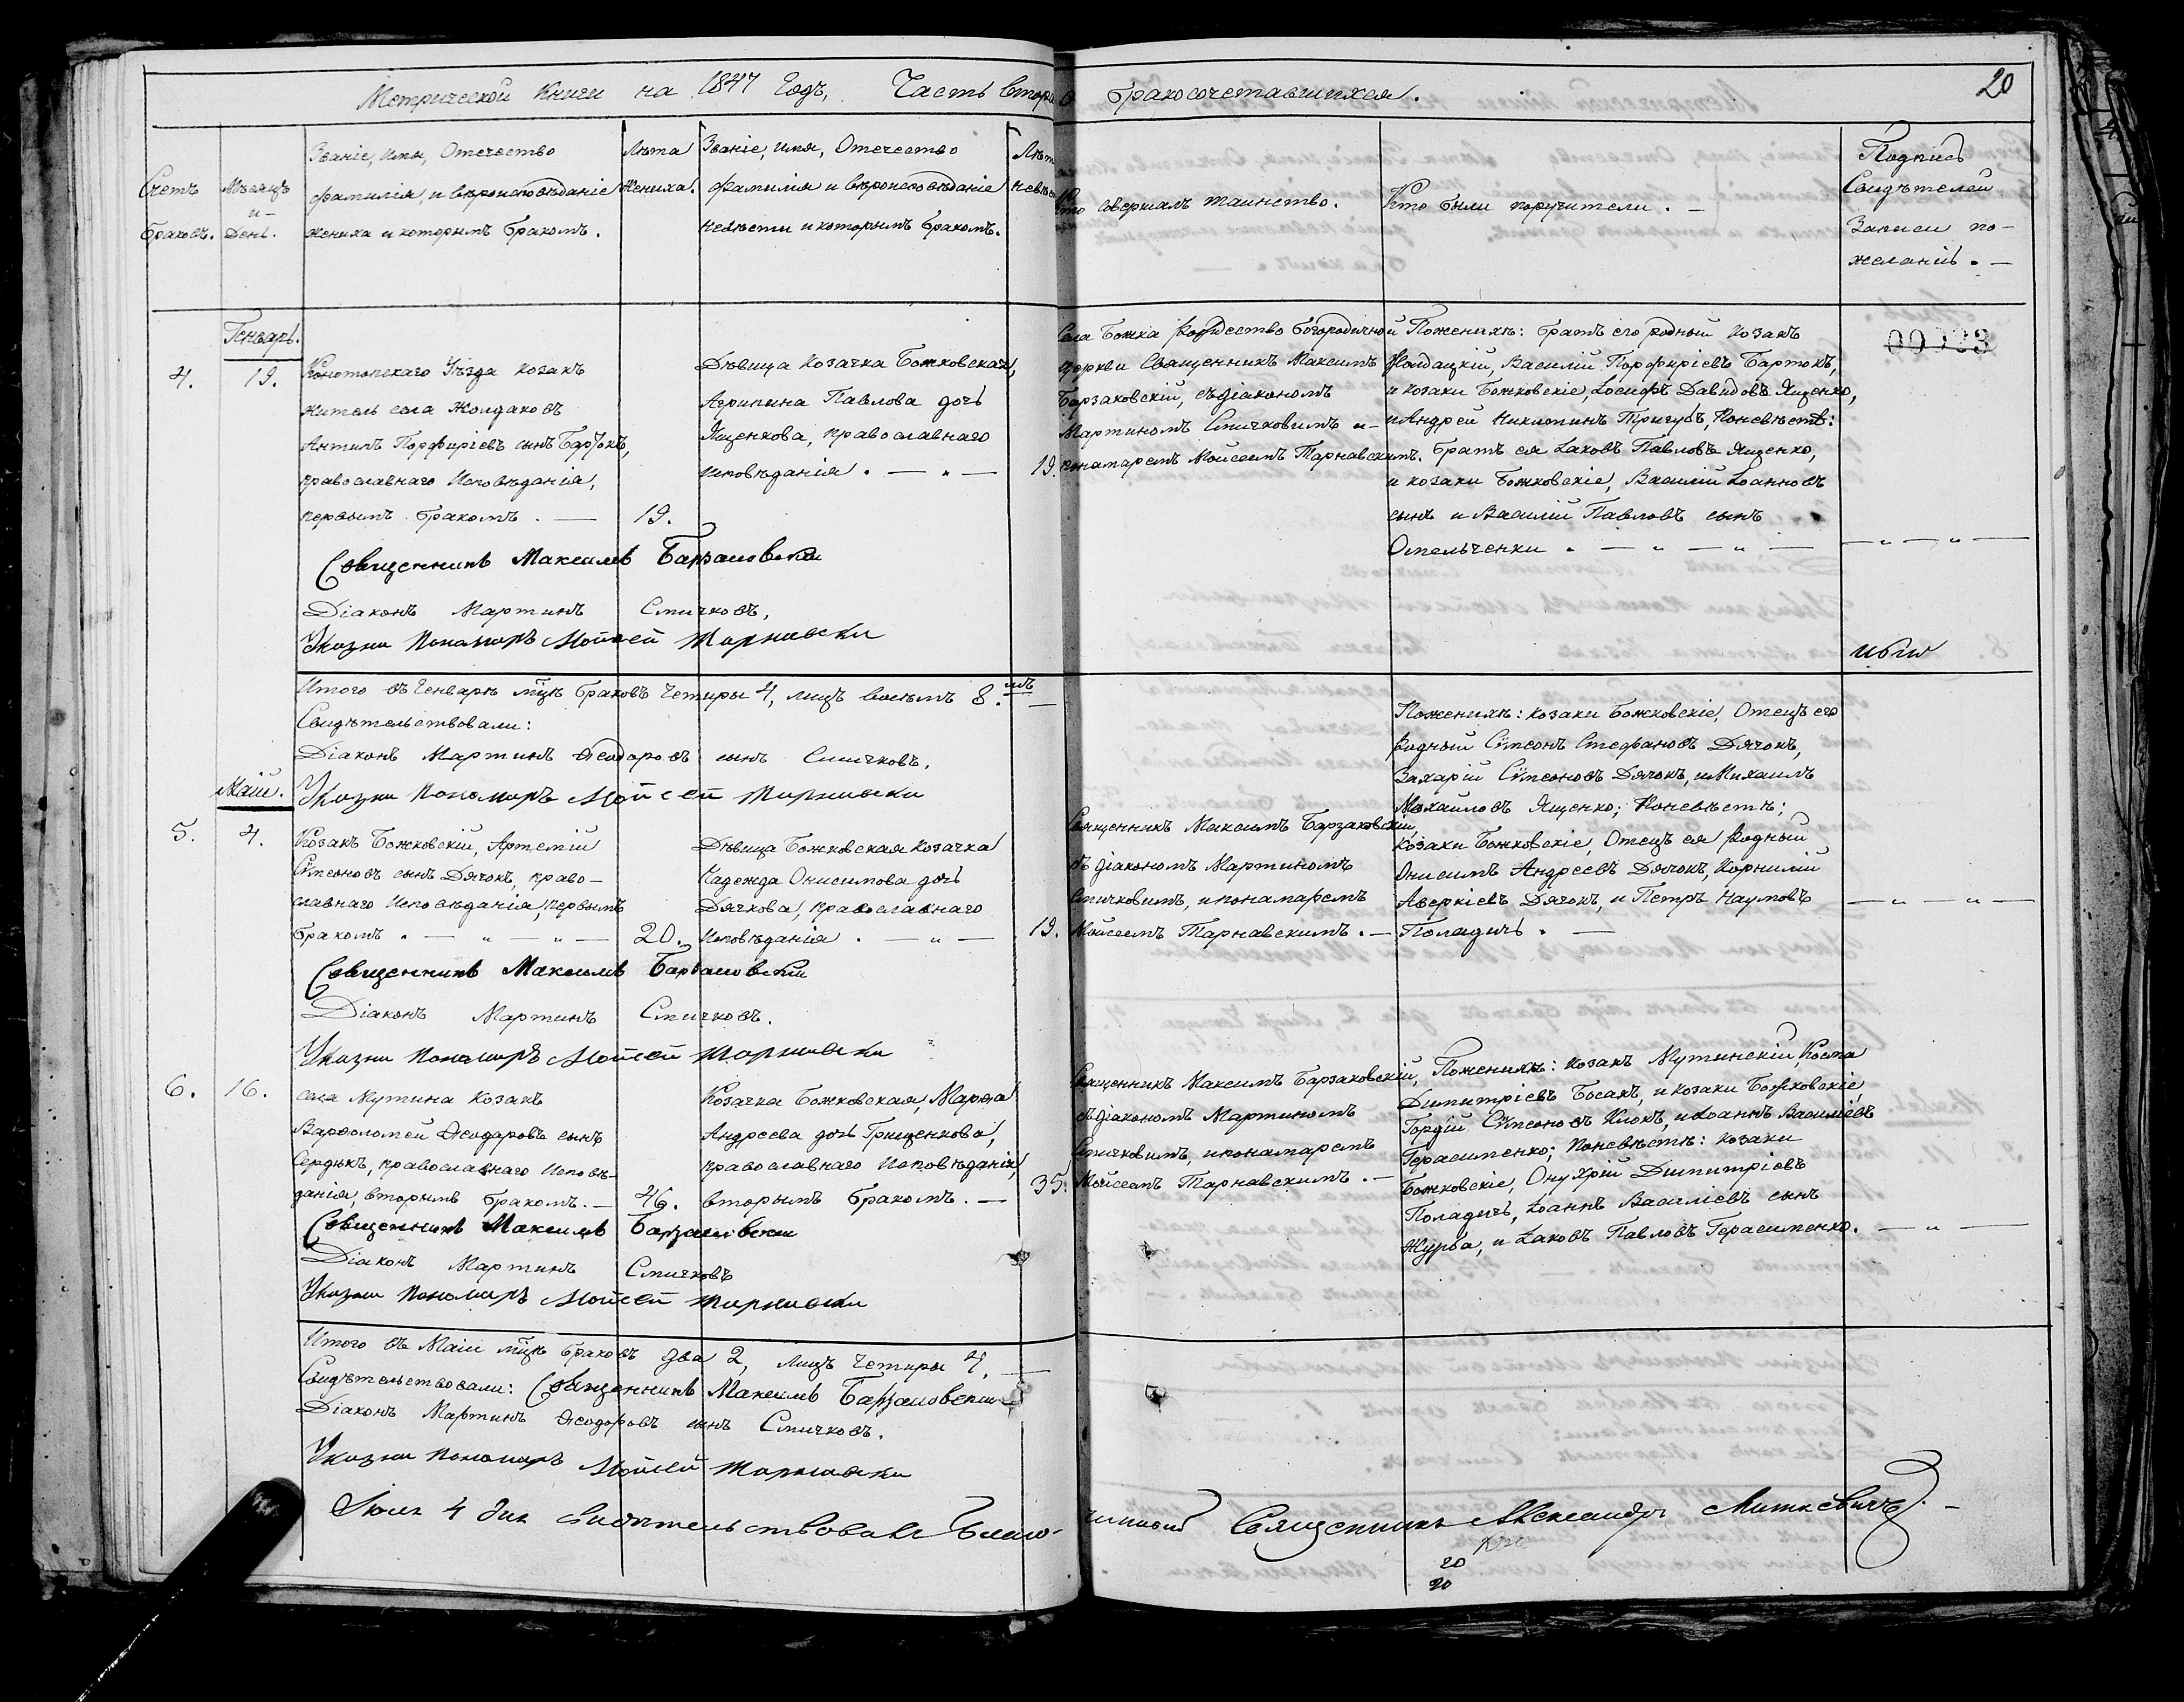 Метрической Книги на 1847 Годъ, Часть Втора о бракосочетавшихся.
20
Счетъ Браковъ.
Мѣсяцъ и День.
Званіе, имя, Отечество
фамилія и вѣроисповѣданіе
жениха и которымъ бракомъ.
Лѣта
жениха.
Званіе, имя, Отечество
фамилія и вѣроисповѣданіе
невѣсти и которымъ бракомъ.
Лѣт
невѣс
Кто совершалъ таинство.
Кто были поручители. —
Подпись
Свидѣтелей
Записи по-
желаніъ. —
Генварь.
4. 19.
Конотопскаго Уѣзда козакъ
житель села Жолдаковъ
Антипъ Порфиріевъ сынъ Бартокъ,
православнаго Исповѣданія,
первымъ бракомъ. — 19.
Дѣвица Козачка Божковская,
Агрипина Павлова дочь
Ященкова, православнаго
исповѣданія. — „ — 19.
Села Божка Рождество Богородичной
церкви Священникъ Максимъ
Барзаковскій, съ діакономъ
Мартиномъ Смичковимъ и-
понамаремъ Мойсеемъ Тарнавскимъ.
Поженихѣ: братъ его родный козакъ
Жолдацкій, Василій Порфиріевъ Бартокъ,
и козаки Божковскіе, Іосифъ Давидовъ Ященко,
и Андрей Никитинъ Тригубъ, Поневѣств:
братъ ея Іаковъ Павловъ Ященко,
и козаки Божковскіе, Василій Іоанновъ
сынъ и Василій Павловъ сынъ
Омельченки. — „ — „ —
— „ — „ —
00933
Священникъ Максимъ Барзаковскій
Діаконъ Мартинъ Смичковъ,
Указни Пономаръ Мойсей Тарнавски
Итого въ Генварѣ мцѣ браковъ четыри 4, лицъ восемъ 8.мъ —
Свидѣтельствовали:
Діаконъ Мартинъ Ѳеодоровъ сынъ Смичковъ.
Указни Пономаръ Мойсей Тарнавски
Маій.
5. 4.
Козакъ Божковскій, Артемій
Сѵмеоновъ сынъ Дячокъ, право-
славнаго Исповѣданія, первымъ
бракомъ. — „ — „ — 20.
Дѣвица Божковская Козачка
Надежда Онисимова дочь
Дячкова, православнаго
Исповѣданія. — „ — 19.
Священникъ Максимъ Барзаковскій,
съ діакономъ Мартиномъ
Смичковимъ, и понамаремъ
Мойсеемъ Тарнавскимъ. —
Поженихѣ: козаки Божковскіе, Отецъ его
родный Сѵмеонъ Стефановъ Дячокъ,
Захарій Сѵмеоновъ Дячокъ, и Михаилъ
Михайловъ Ященко; Поневѣстѣ:
Козаки Божковскіе, Отецъ ея родный
Онисимъ Андреевъ Дячокъ, Корнилій
Аверкіевъ Дячокъ, и Петръ Наумовъ
Поладичъ. —
— „ — „ —
Священникъ Максимъ Барзаковскій
Діаконъ Мартинъ Смичковъ.
Указни Пономаръ Мойсей Тарнавски
6. 16.
села Мутина Козакъ
Варѳоломей Ѳеодоровъ сынъ
Сердюкъ, православнаго Исповѣ-
данія, вторымъ бракомъ. — 46.
Козачка Божковская, Марѳа
Андреева дочь Грищенкова,
православнаго Исповѣданія,
вторымъ бракомъ. — 35.
Священникъ Максимъ Барзаковскій,
съ діакономъ Мартиномъ
Смичковимъ, и понамаремъ
Мойсеемъ Тарнавскимъ. —
Поженихѣ: козакъ Мутинскій, Косма
Димитріевъ Босакъ, и козаки Божковскіе,
Гордій Сѵмеоновъ Клокъ, и Іоаннъ Василіевъ
Герасименко; Поневѣстѣ: Козаки
Божковскіе, Онуфрій Димитріевъ
Поладичъ, Іоаннъ Василіевъ сынъ
Журба, и Іаковъ Павловъ Герасименко.
— „ —
Священникъ Максимъ Барзаковски
Діаконъ Мартинъ Смичковъ
Указни Пономаръ Мойсей Тарнавски
Итого въ Маіи мцѣ браковъ два 2, лицъ четыри 4. —
Свидѣтельствовали: Священникъ Максимъ Барзаковскій
Діаконъ Мартинъ Ѳеодоровъ сынъ Смичковъ.
Указни Пономаръ Мойсей Тарнавски
Іюля 4 дня свидѣтельствовалъ Благо-
чинный Священникъ Александръ Миткевичъ. —
20
20